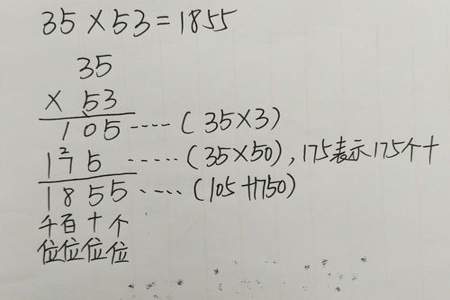 35×53=1855
35
× 53
105 ---- (35×3)
1²75 ----- (35×50), 175表示175个十
1855 ---- (105+1750)
千百十个
位位位位